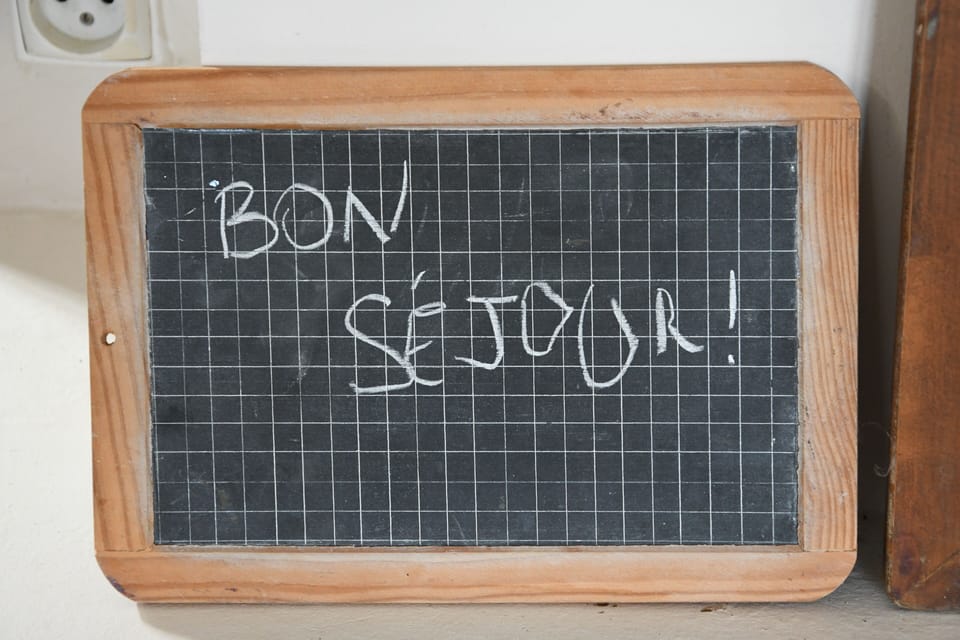 BON
SÉJOUR !